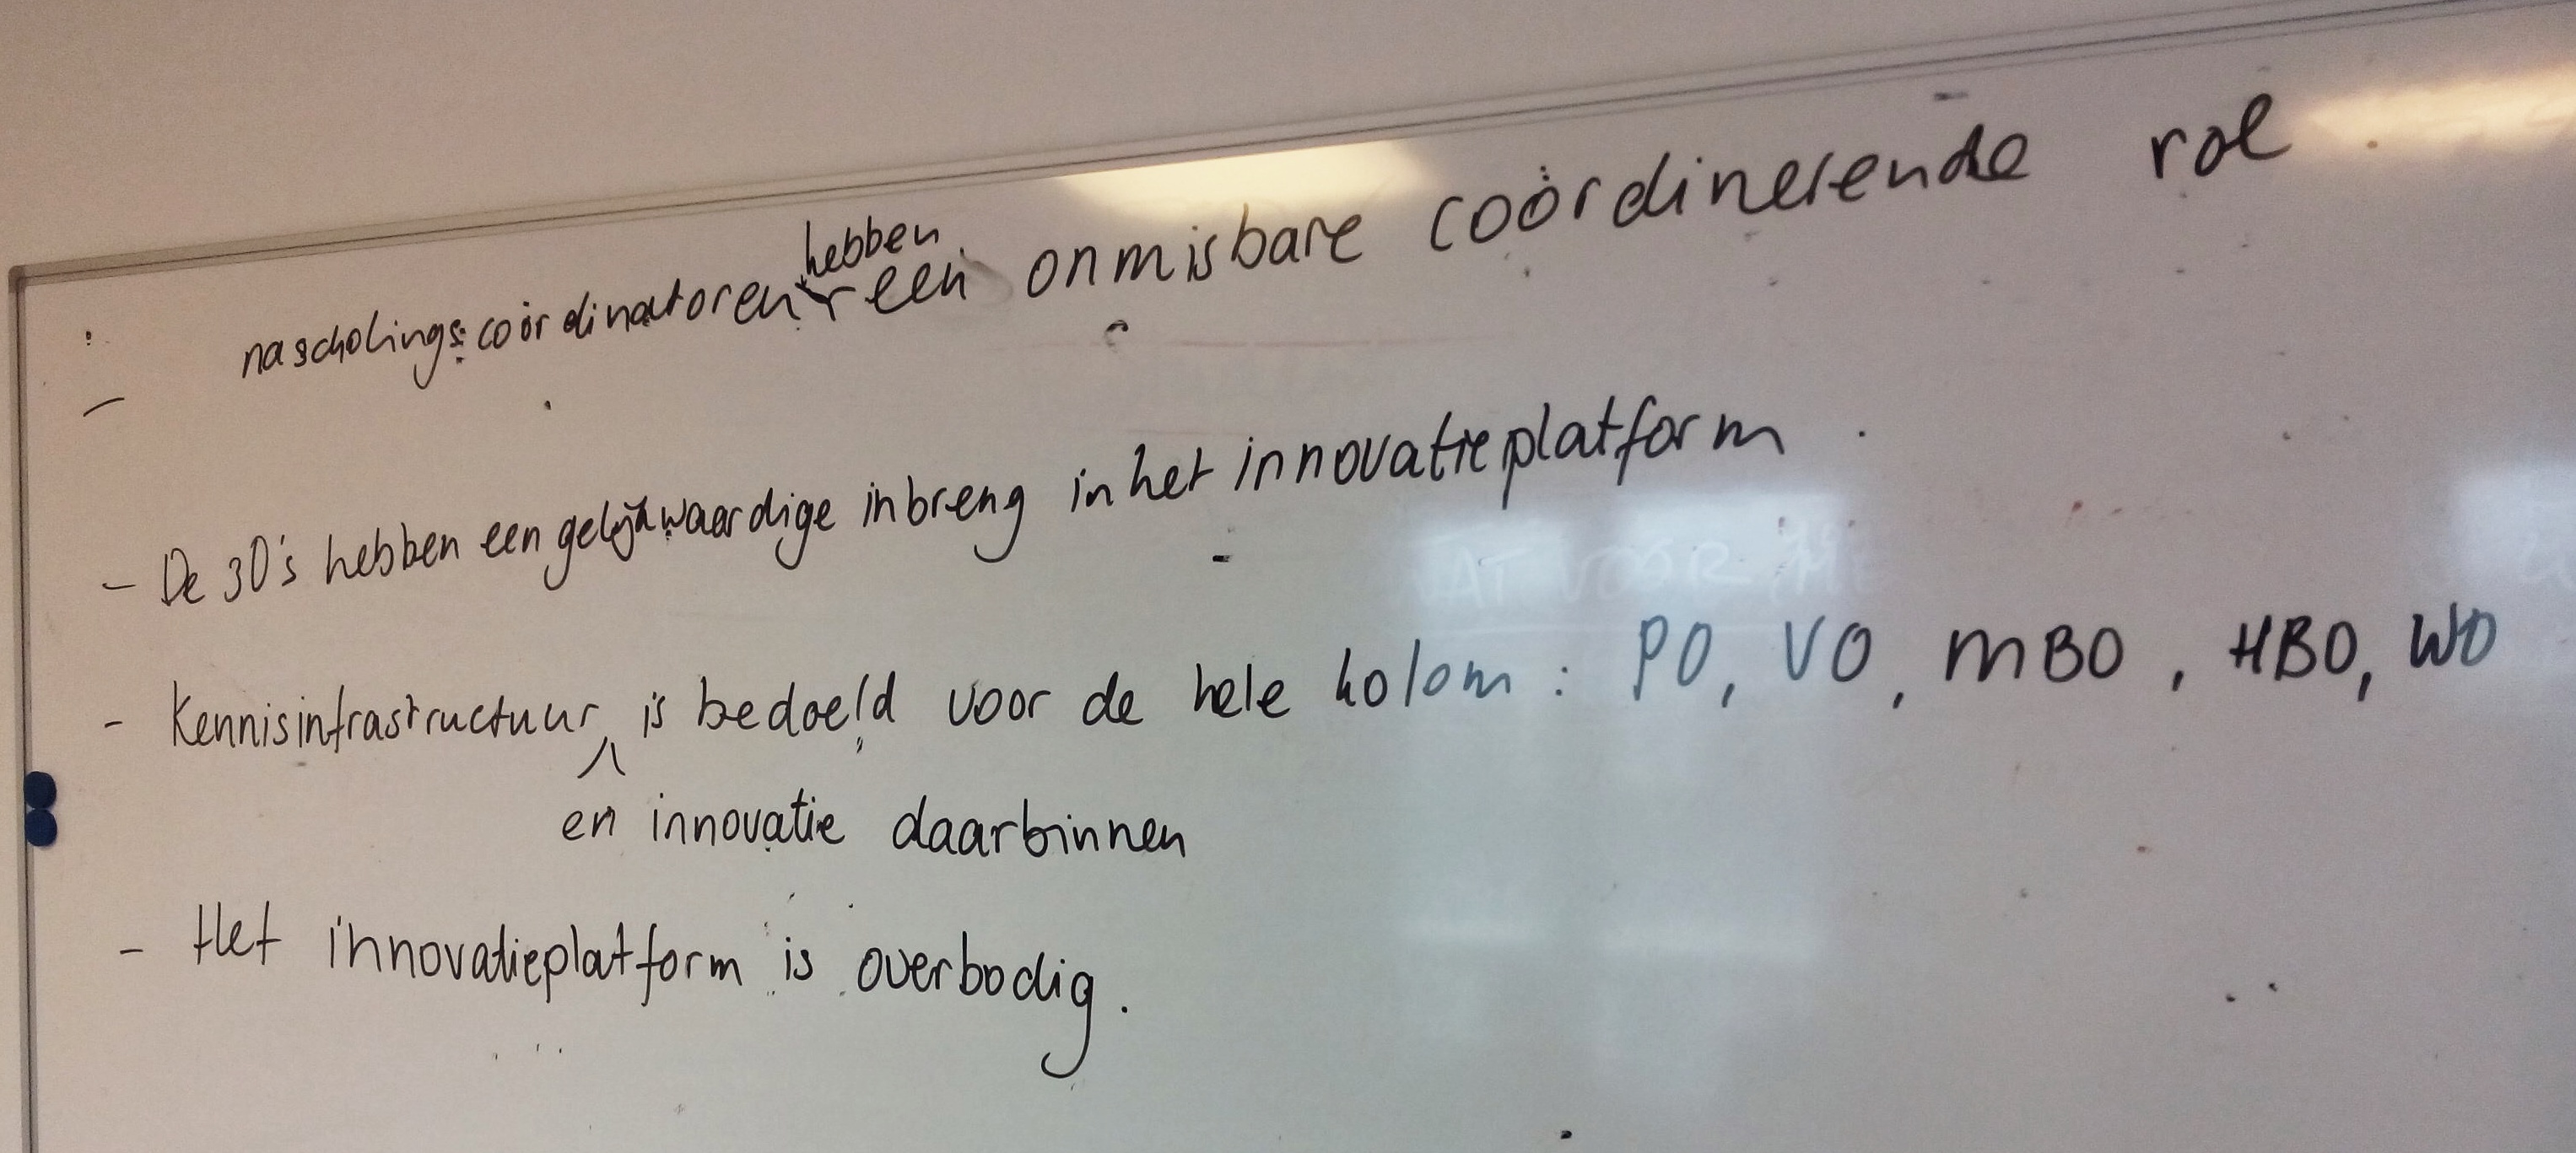 hebben
nascholingscoördinatoren een onmisbare coördinerende rol
- De 3O's hebben een gelijkwaardige inbreng in het innovatieplatform.
- Kennisinfrastructuur is bedoeld voor de hele kolom: PO, VO, MBO, HBO, WO
en innovatie daarbinnen
- Het innovatieplatform is overbodig.